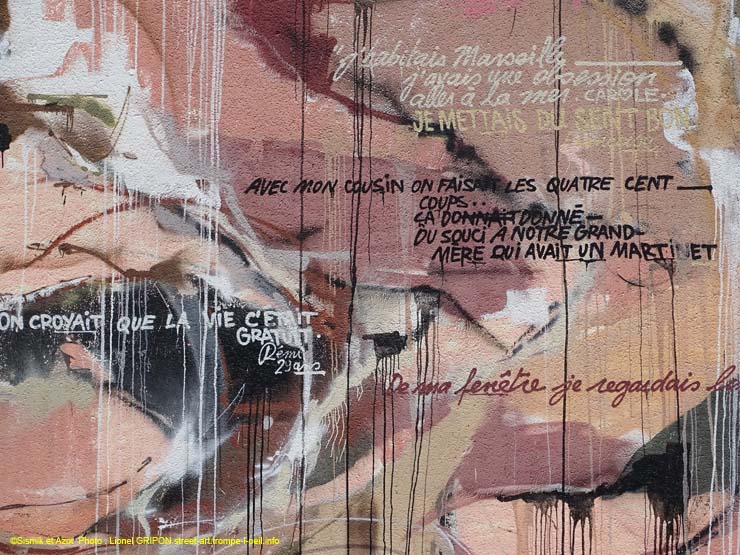 "J'habitais Marseille
j'avais une obsession
aller à la mer. CAROLE
JE METTAIS DU SENT BON
AVEC MON COUSIN ON FAISAIT LES QUATRE CENT
COUPS..
ÇA DONNAIT DONNÉ
DU SOUCI À NOTRE GRAND-
MÈRE QUI AVAIT UN MARTINET
ON CROYAIT QUE LA VIE C'ETAIT
GRATUIT.
Rémi
23 ans
De ma fenêtre je regardais
©Sismik et Azot Photo : Lionel GRIPON street-art.trompe-l-oeil.info